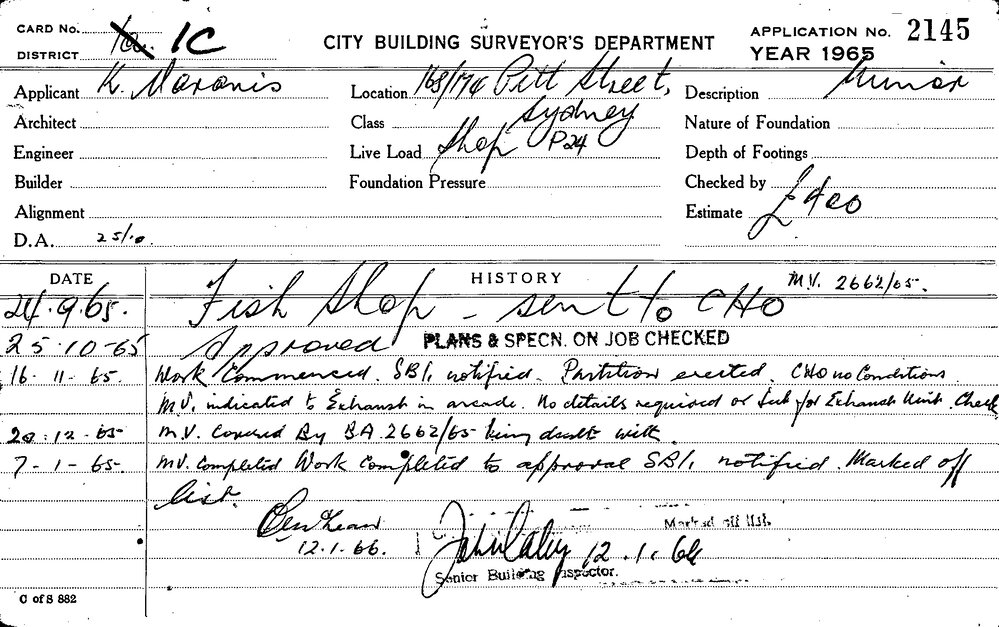 CARD No. 1a. 1C
DISTRICT
CITY BUILDING SURVEYOR'S DEPARTMENT
APPLICATION No. 2145
YEAR 1965
Applicant K. Maranis
Location 168/174 Pitt Street,
Sydney
Description Minor
Architect
Class
Nature of Foundation
Engineer
Live Load Shop P24
Depth of Footings
Builder
Foundation Pressure
Checked by
Alignment
Estimate £400
D.A. 25/0.
DATE
HISTORY
M.V. 2662/65.
24.9.65. Fish Shop - sent to CHO
25.10-65 Approved PLANS & SPECN. ON JOB CHECKED
16-11-65. Work Commenced. SBI, notified. Partition erected. CHO no Conditions.
M.V. indicated to Exhaust in arcade. No details required or for Exhaust Unit. Check
20:12-65 M.V. Covered By BA 2662/65 being dealt with.
7-1-65- M.V. Completed Work Completed to approval SBI, notified. Marked off
list.
12.1.66.
Marked off list.
12.1.66
Senior Building Inspector.
C of S 882